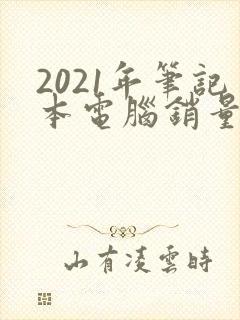 2021年筆記
本電腦銷量
山有凌雲時